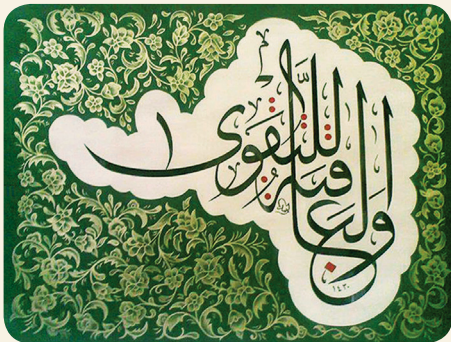 والعاقبة للتقوى
١٤٣٠